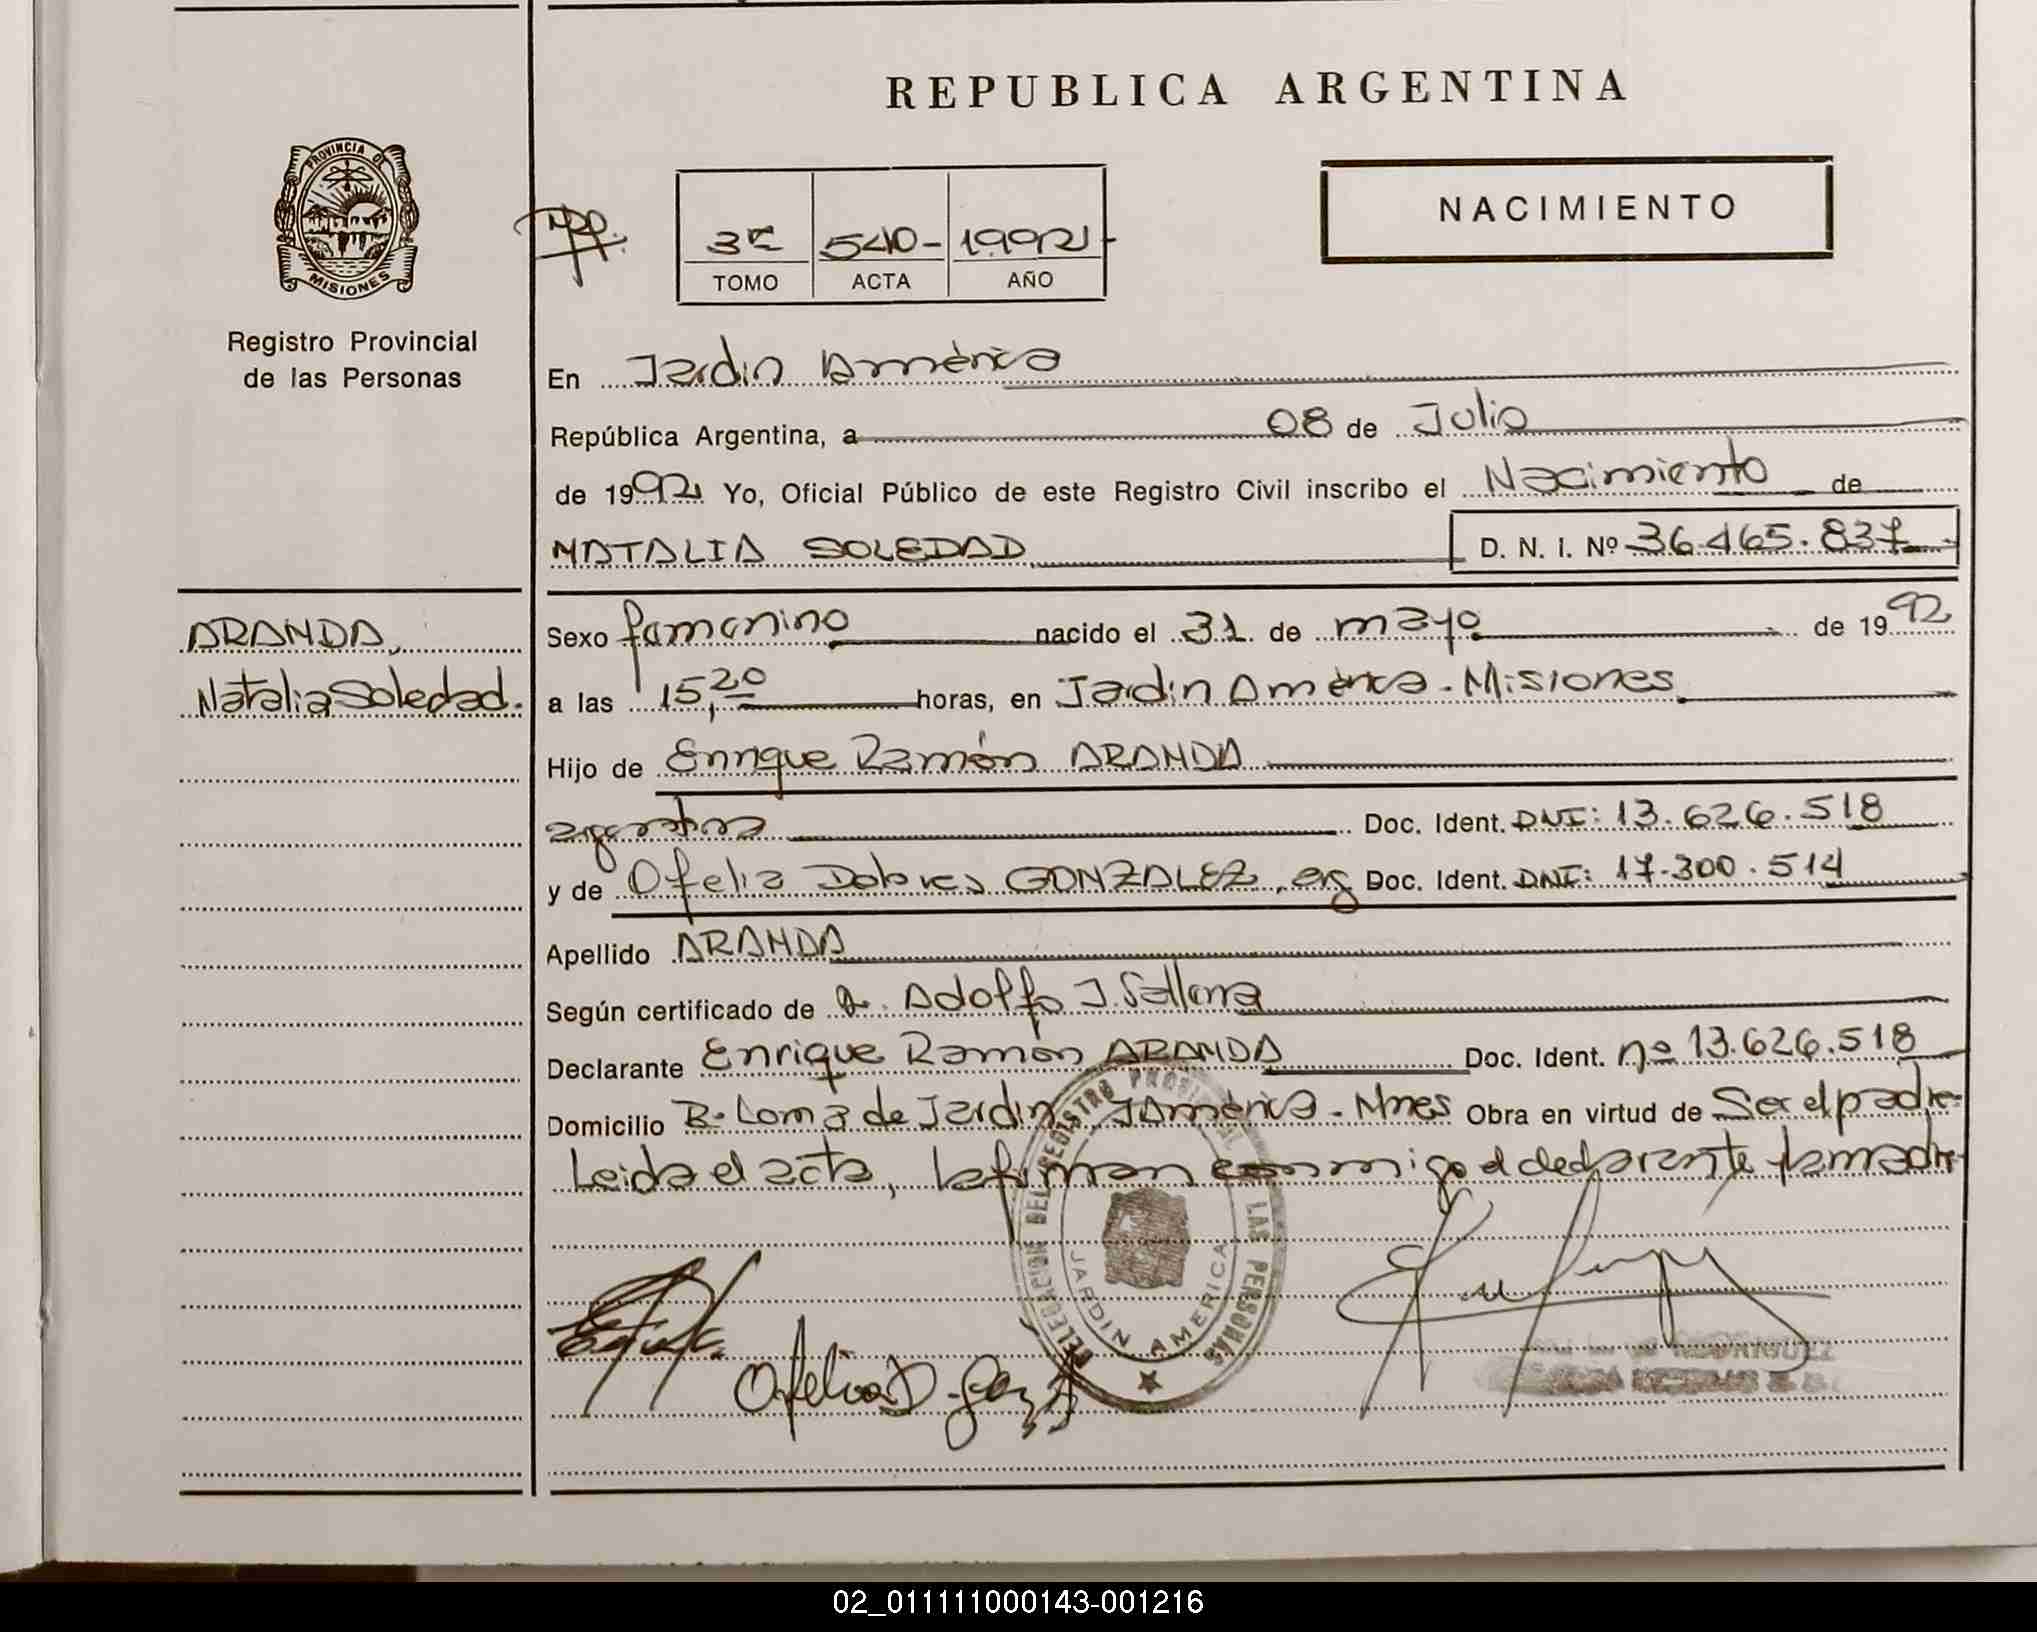 REPUBLICA ARGENTINA
PROVINCIA DE
MISIONES
Registro Provincial
de las Personas
3º 540- 1992-
TOMO ACTA AÑO
NACIMIENTO
En Jardin América
República Argentina, a 08 de Julio
de 1992 Yo, Oficial Público de este Registro Civil inscribo el Nacimiento de
NATALIA SOLEDAD D. N. I. Nº 36.465.837
ARANDA,
Natalia Soledad.
Sexo femenino nacido el 31 de mayo de 1992
a las 15,20 horas, en Jardin América - Misiones
Hijo de Enrique Ramón ARANDA
argentina Doc. Ident. DNI: 13.626.518
y de Ofelia Dolores GONZALEZ, arg Doc. Ident. DNI: 17.300.514
Apellido ARANDA
Según certificado de Adolfo J.
Declarante Enrique Ramón ARANDA Doc. Ident. nº 13.626.518
Domicilio Bº Loma de Jardin América - Mnes Obra en virtud de Ser el padre-
Leida el acta, la firman conmigo el declarante y la madre-
DELEGACION DEL REGISTRO PROVINCIAL DE LAS PERSONAS
JARDIN AMERICA
Ofelia D.
RODRIGUEZ
02_011111000143-001216